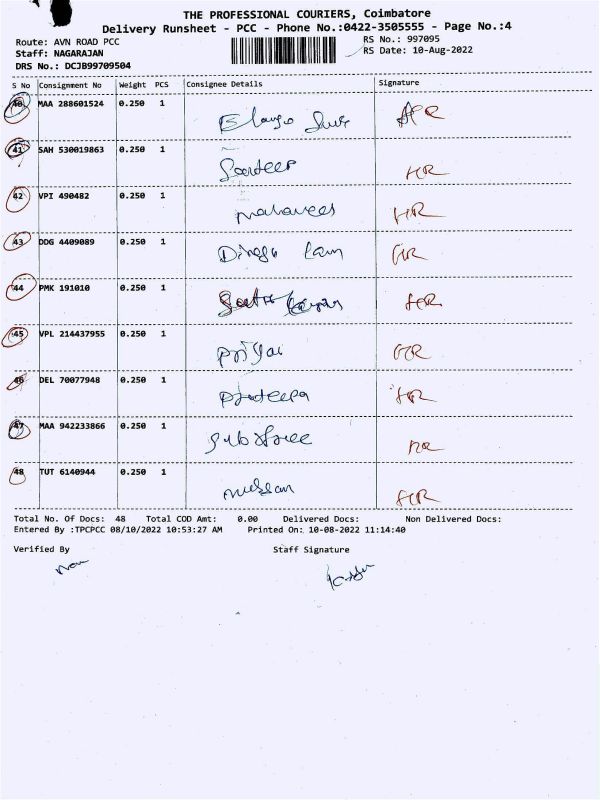 THE PROFESSIONAL COURIERS, Coimbatore
Delivery Runsheet - PCC - Phone No.:0422-3505555 - Page No.:4
Route: AVN ROAD PCC RS No.: 997095
Staff: NAGARAJAN RS Date: 10-Aug-2022
DRS No.: DCJB99709504
S No Consignment No Weight PCS Consignee Details Signature
40 MAA 288601524 0.250 1
41 SAH 530019863 0.250 1 Sandeep HR
42 VPI 490482 0.250 1 HR
43 DDG 4409089 0.250 1 HR
44 PMK 191010 0.250 1 HR
45 VPL 214437955 0.250 1 Priya HR
46 DEL 70077948 0.250 1 Pradeepa HR
47 MAA 942233866 0.250 1 HR
48 TUT 6140944 0.250 1 HR
Total No. Of Docs: 48 Total COD Amt: 0.00 Delivered Docs: Non Delivered Docs:
Entered By :TPCPCC 08/10/2022 10:53:27 AM Printed On: 10-08-2022 11:14:40
Verified By Staff Signature